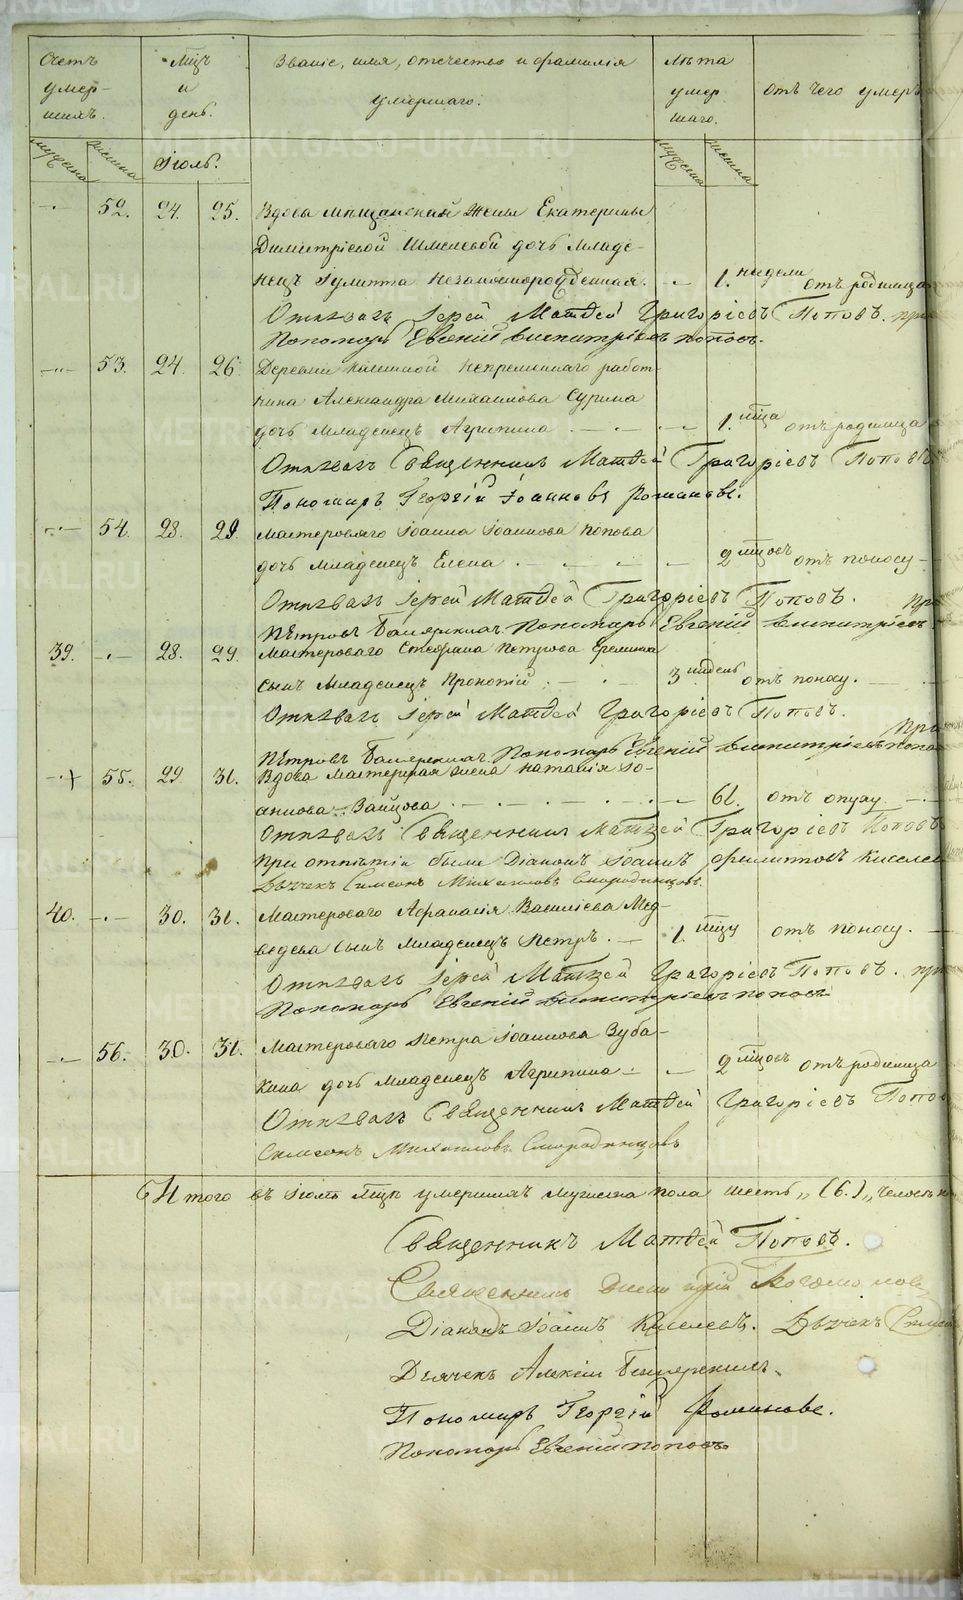 Счетъ умер-шихъ.
Мцъ и день.
Званіе, имя, отечество и фамилія умершаго.
Лѣта умер шаго.
отъ чего умеръ
мужеска
женска
Іюль.
мужеска
женска
52. 24. 25. Вдова мѣщанской жены Екатерины
Димитріевой Шмелевой дочь младе-
нецъ Іулитта незаконнорожденная. 1. недели отъ родимца
Отпѣвалъ Іерей Матѳей Григорьевъ Поповъ. при
Пономарь Евгеній Димитріевъ Поповъ.
53. 24. 26. Деревни непремѣннаго работ-
ника Александра Михаилова Сурина
дочь младенецъ Агрипина 1. мца отъ родимца
Отпѣвалъ Священникъ Матѳей Григорьевъ Поповъ
Пономарь Георгій Іоанновъ Романовъ.
54. 28. 29. Мастероваго Іоанна Іоаннова Попова
дочь младенецъ Елена 2 мцовъ отъ поносу
Отпѣвалъ Іерей Матѳей Григорьевъ Поповъ. при
Пѣтровъ Пономарь Евгеній Димитріевъ
39. 28. 29. Мастероваго Стефана Петрова Еремина
сынъ младенецъ Прокопій 3 недель отъ поносу.
Отпѣвалъ Іерей Матѳей Григорьевъ Поповъ. при
Пѣтровъ Пономарь Евгеній Димитріевъ попо
55. 29 31. Вдова мастерская жена Наталія Іо-
аннова Зайцова 61. отъ опуху
Отпѣвалъ Священникъ Матѳей Григорьевъ Поповъ
при отпѣтіи были Діаконъ Іоаннъ Филипповъ Киселевъ
Дьячекъ Симеонъ Михаиловъ Смородинцовъ.
40. 30. 31. Мастероваго Афанасія Василіева Мед-
ведева сынъ младенецъ Петръ. 1. мцу отъ поносу.
Отпѣвалъ Іерей Матѳей Григорьевъ Поповъ. при
Пономарь Евгеній Димитріевъ Поповъ
56. 30. 31. Мастероваго Петра Іоаннова Зуба-
кина дочь младенецъ Агрипина 2 мцовъ отъ родимца
Отпѣвалъ Священникъ Матѳей Григорьевъ Попов
Симеонъ Михаиловъ Смородинцовъ
Итого въ Іюль мцѣ умершихъ мужеска пола шесть „(6.)„ человѣкъ
Священникъ Матѳей Поповъ.
Священникъ
Діаконъ Іоаннъ Киселевъ. Дьячекъ Симеонъ
Дьячекъ Алексій
Пономарь Георгій Романовъ.
Пономарь Евгеній Поповъ
METRIKI.GASO-URAL.RU